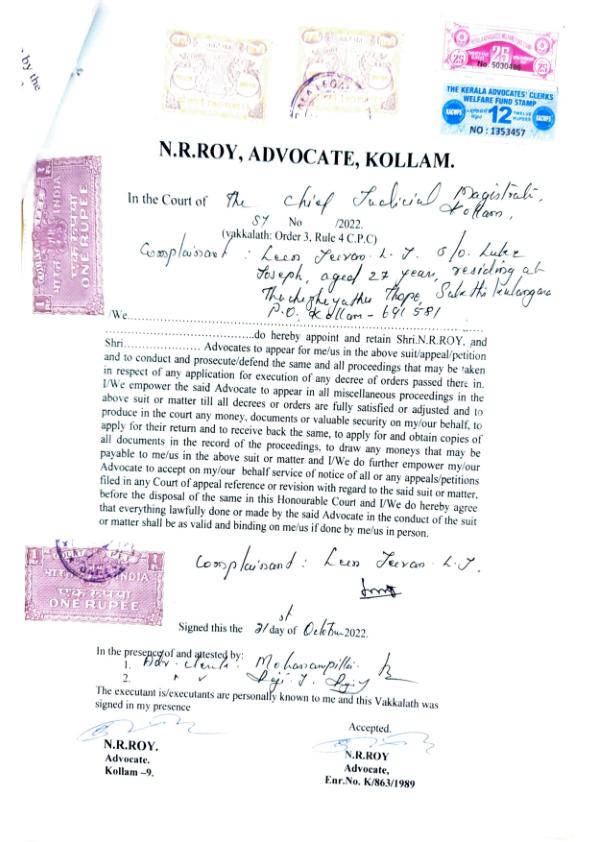 by the
KERALA ADVOCATES WELFARE FUND
25 25 25
No 5030486
THE KERALA ADVOCATES' CLERKS
WELFARE FUND STAMP
KACWFS 12 TWELVE RUPEES KACWFS
NO : 1353457
N.R.ROY, ADVOCATE, KOLLAM.
In the Court of The Chief Judicial Magistrate,
Kollam,
ST No /2022.
(vakkalath: Order 3, Rule 4 C.P.C)
Complainant : Leen Jeevan L.J. S/o. Luke
Joseph, aged 27 years, residing at
Thope, Sakthikulangara
P.O. Kollam - 691 581
/We
do hereby appoint and retain Shri.N.R.ROY, and
Shri................ Advocates to appear for me/us in the above suit/appeal/petition
and to conduct and prosecute/defend the same and all proceedings that may be taken
in respect of any application for execution of any decree of orders passed there in.
I/We empower the said Advocate to appear in all miscellaneous proceedings in the
above suit or matter till all decrees or orders are fully satisfied or adjusted and to
produce in the court any money, documents or valuable security on my/our behalf, to
apply for their return and to receive back the same, to apply for and obtain copies of
all documents in the record of the proceedings, to draw any moneys that may be
payable to me/us in the above suit or matter and I/We do further empower my/our
Advocate to accept on my/our behalf service of notice of all or any appeals/petitions
filed in any Court of appeal reference or revision with regard to the said suit or matter,
before the disposal of the same in this Honourable Court and I/We do hereby agree
that everything lawfully done or made by the said Advocate in the conduct of the suit
or matter shall be as valid and binding on me/us if done by me/us in person.
भारत INDIA
एक रुपया
ONE RUPEE
भारत INDIA
एक रुपया
ONE RUPEE
Complainant : Leen Jeevan L.J.
Signed this the 21st day of October 2022.
In the presence of and attested by:
1. Adv. Clerk. Mohananpillai
2. " " Siji. J.
The executant is/executants are personally known to me and this Vakkalath was
signed in my presence
Accepted.
N.R.ROY.
Advocate.
Kollam –9.
N.R.ROY
Advocate,
Enr.No. K/863/1989